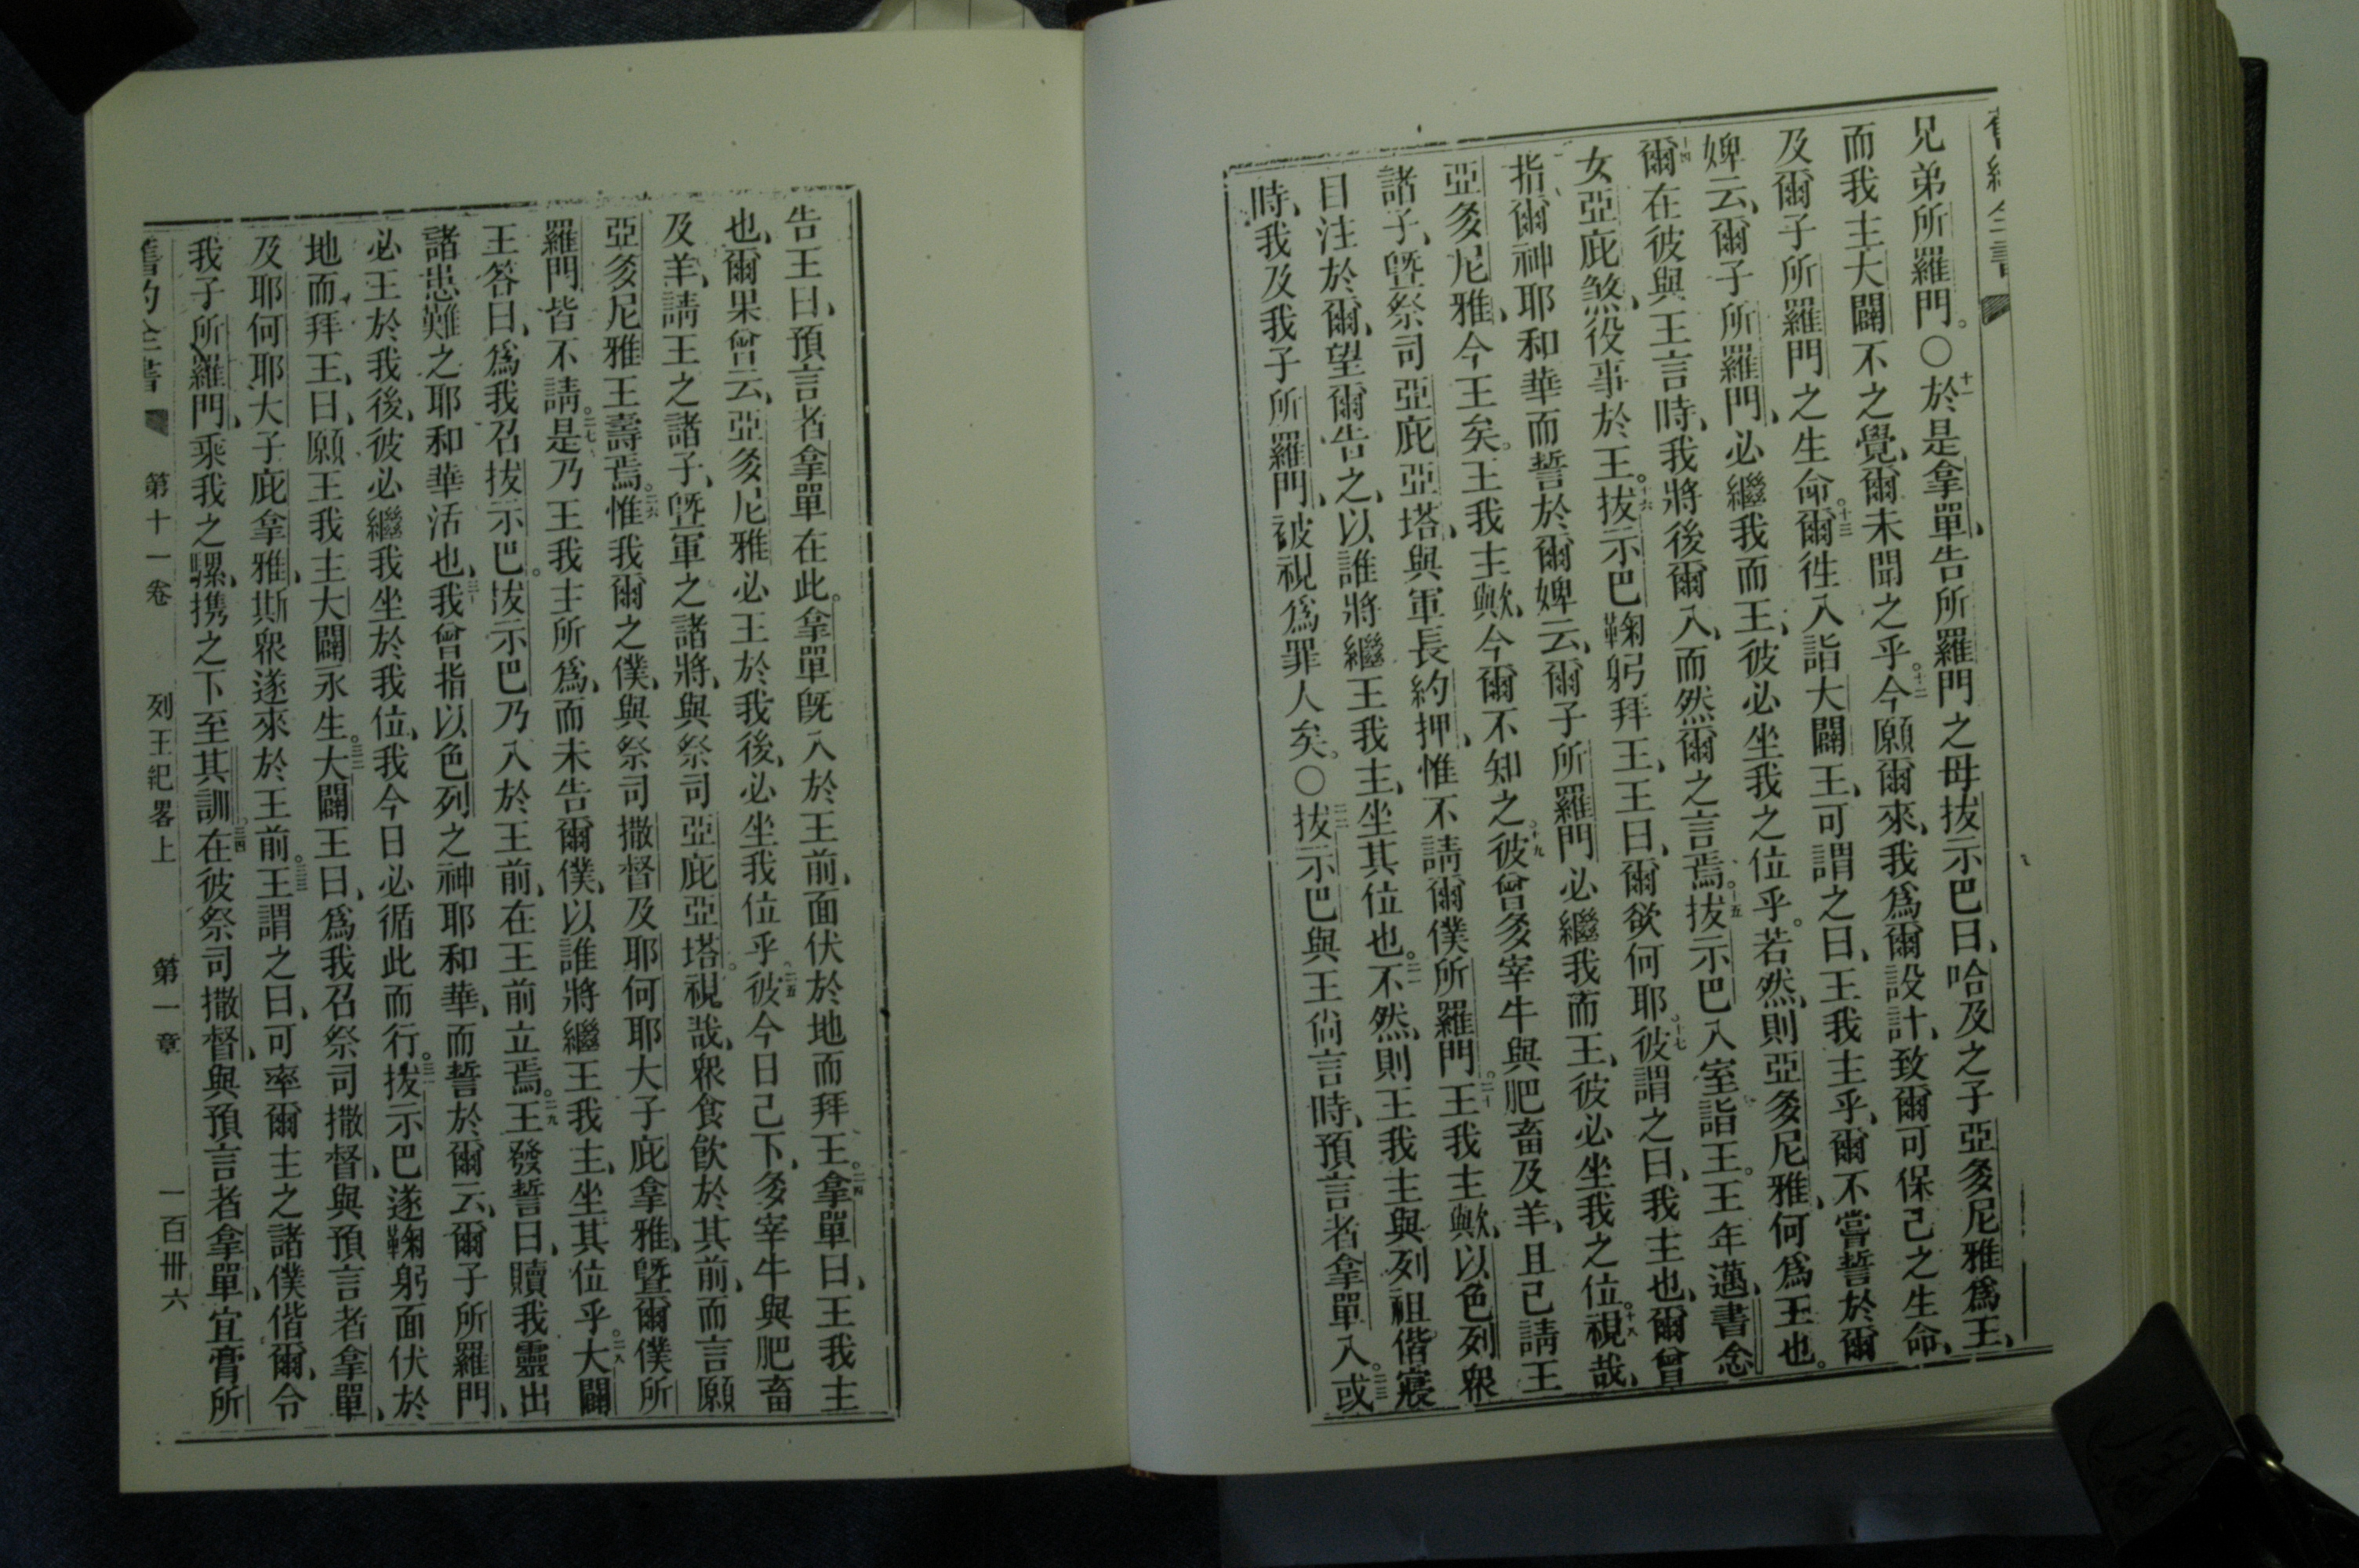 兄弟所羅門。○十一於是拿單、告所羅門之母拔示巴曰、哈及之子亞多尼雅爲王、
而我主大闢不之覺、爾未聞之乎。十二今願爾來、我爲爾設計、致爾可保己之生命、
及爾子所羅門之生命。十三爾徃入詣大闢王、可謂之曰、王我主乎、爾不嘗誓於爾
婢云、爾子所羅門、必繼我而王、彼必坐我之位乎。若然、則亞多尼雅、何爲王也。
十四爾在彼與王言時、我將後爾入、而然爾之言焉。十五拔示巴入室詣王。王年邁、書念
女亞庇煞、役事於王。十六拔示巴鞠躬拜王、王曰、爾欲何耶。十七彼謂之曰、我主也、爾曾
指爾神耶和華而誓於爾婢云、爾子所羅門必繼我而王、彼必坐我之位。十八視哉、
亞多尼雅、今王矣。王我主歟、今爾不知之。十九彼曾多宰牛與肥畜及羊、且已請王
諸子、曁祭司亞庇亞塔、與軍長約押、惟不請爾僕所羅門。二十王我主歟、以色列衆
目注於爾、望爾告之、以誰將繼王我主、坐其位也。二一不然、則王我主與列祖偕寢
時、我及我子所羅門、被視爲罪人矣。○二二拔示巴與王尙言時、預言者拿單入。二三或
告王曰、預言者拿單在此。拿單旣入於王前、面伏於地而拜王。二四拿單曰、王我主
也、爾果曾云、亞多尼雅必王於我後、必坐我位乎。二五彼今日已下、多宰牛與肥畜
及羊、請王之諸子、曁軍之諸將、與祭司亞庇亞塔。視哉、衆食飮於其前、而言願
亞多尼雅王壽焉。二六惟我爾之僕、與祭司撒督及耶何耶大子庇拿雅、曁爾僕所
羅門皆不請。二七是乃王我主所爲、而未告爾僕、以誰將繼王我主、坐其位乎。二八大闢
王答曰、爲我召拔示巴。拔示巴乃入於王前、在王前立焉。二九王發誓曰、贖我靈出
諸患難之耶和華活也、三十我曾指以色列之神耶和華、而誓於爾云、爾子所羅門、
必王於我後、彼必繼我坐於我位、我今日必循此而行。三一拔示巴遂鞠躬面伏於
地而拜王、曰、願王我主大闢永生。三二大闢王曰、爲我召祭司撒督、與預言者拿單、
及耶何耶大子庇拿雅、斯衆遂來於王前。三三王謂之曰、可率爾主之諸僕偕爾、令
我子所羅門、乘我之騾、携之下至其訓、三四在彼祭司撒督、與預言者拿單、宜膏所
舊約全書 第十一卷 列王紀畧上 第一章 一百卅六